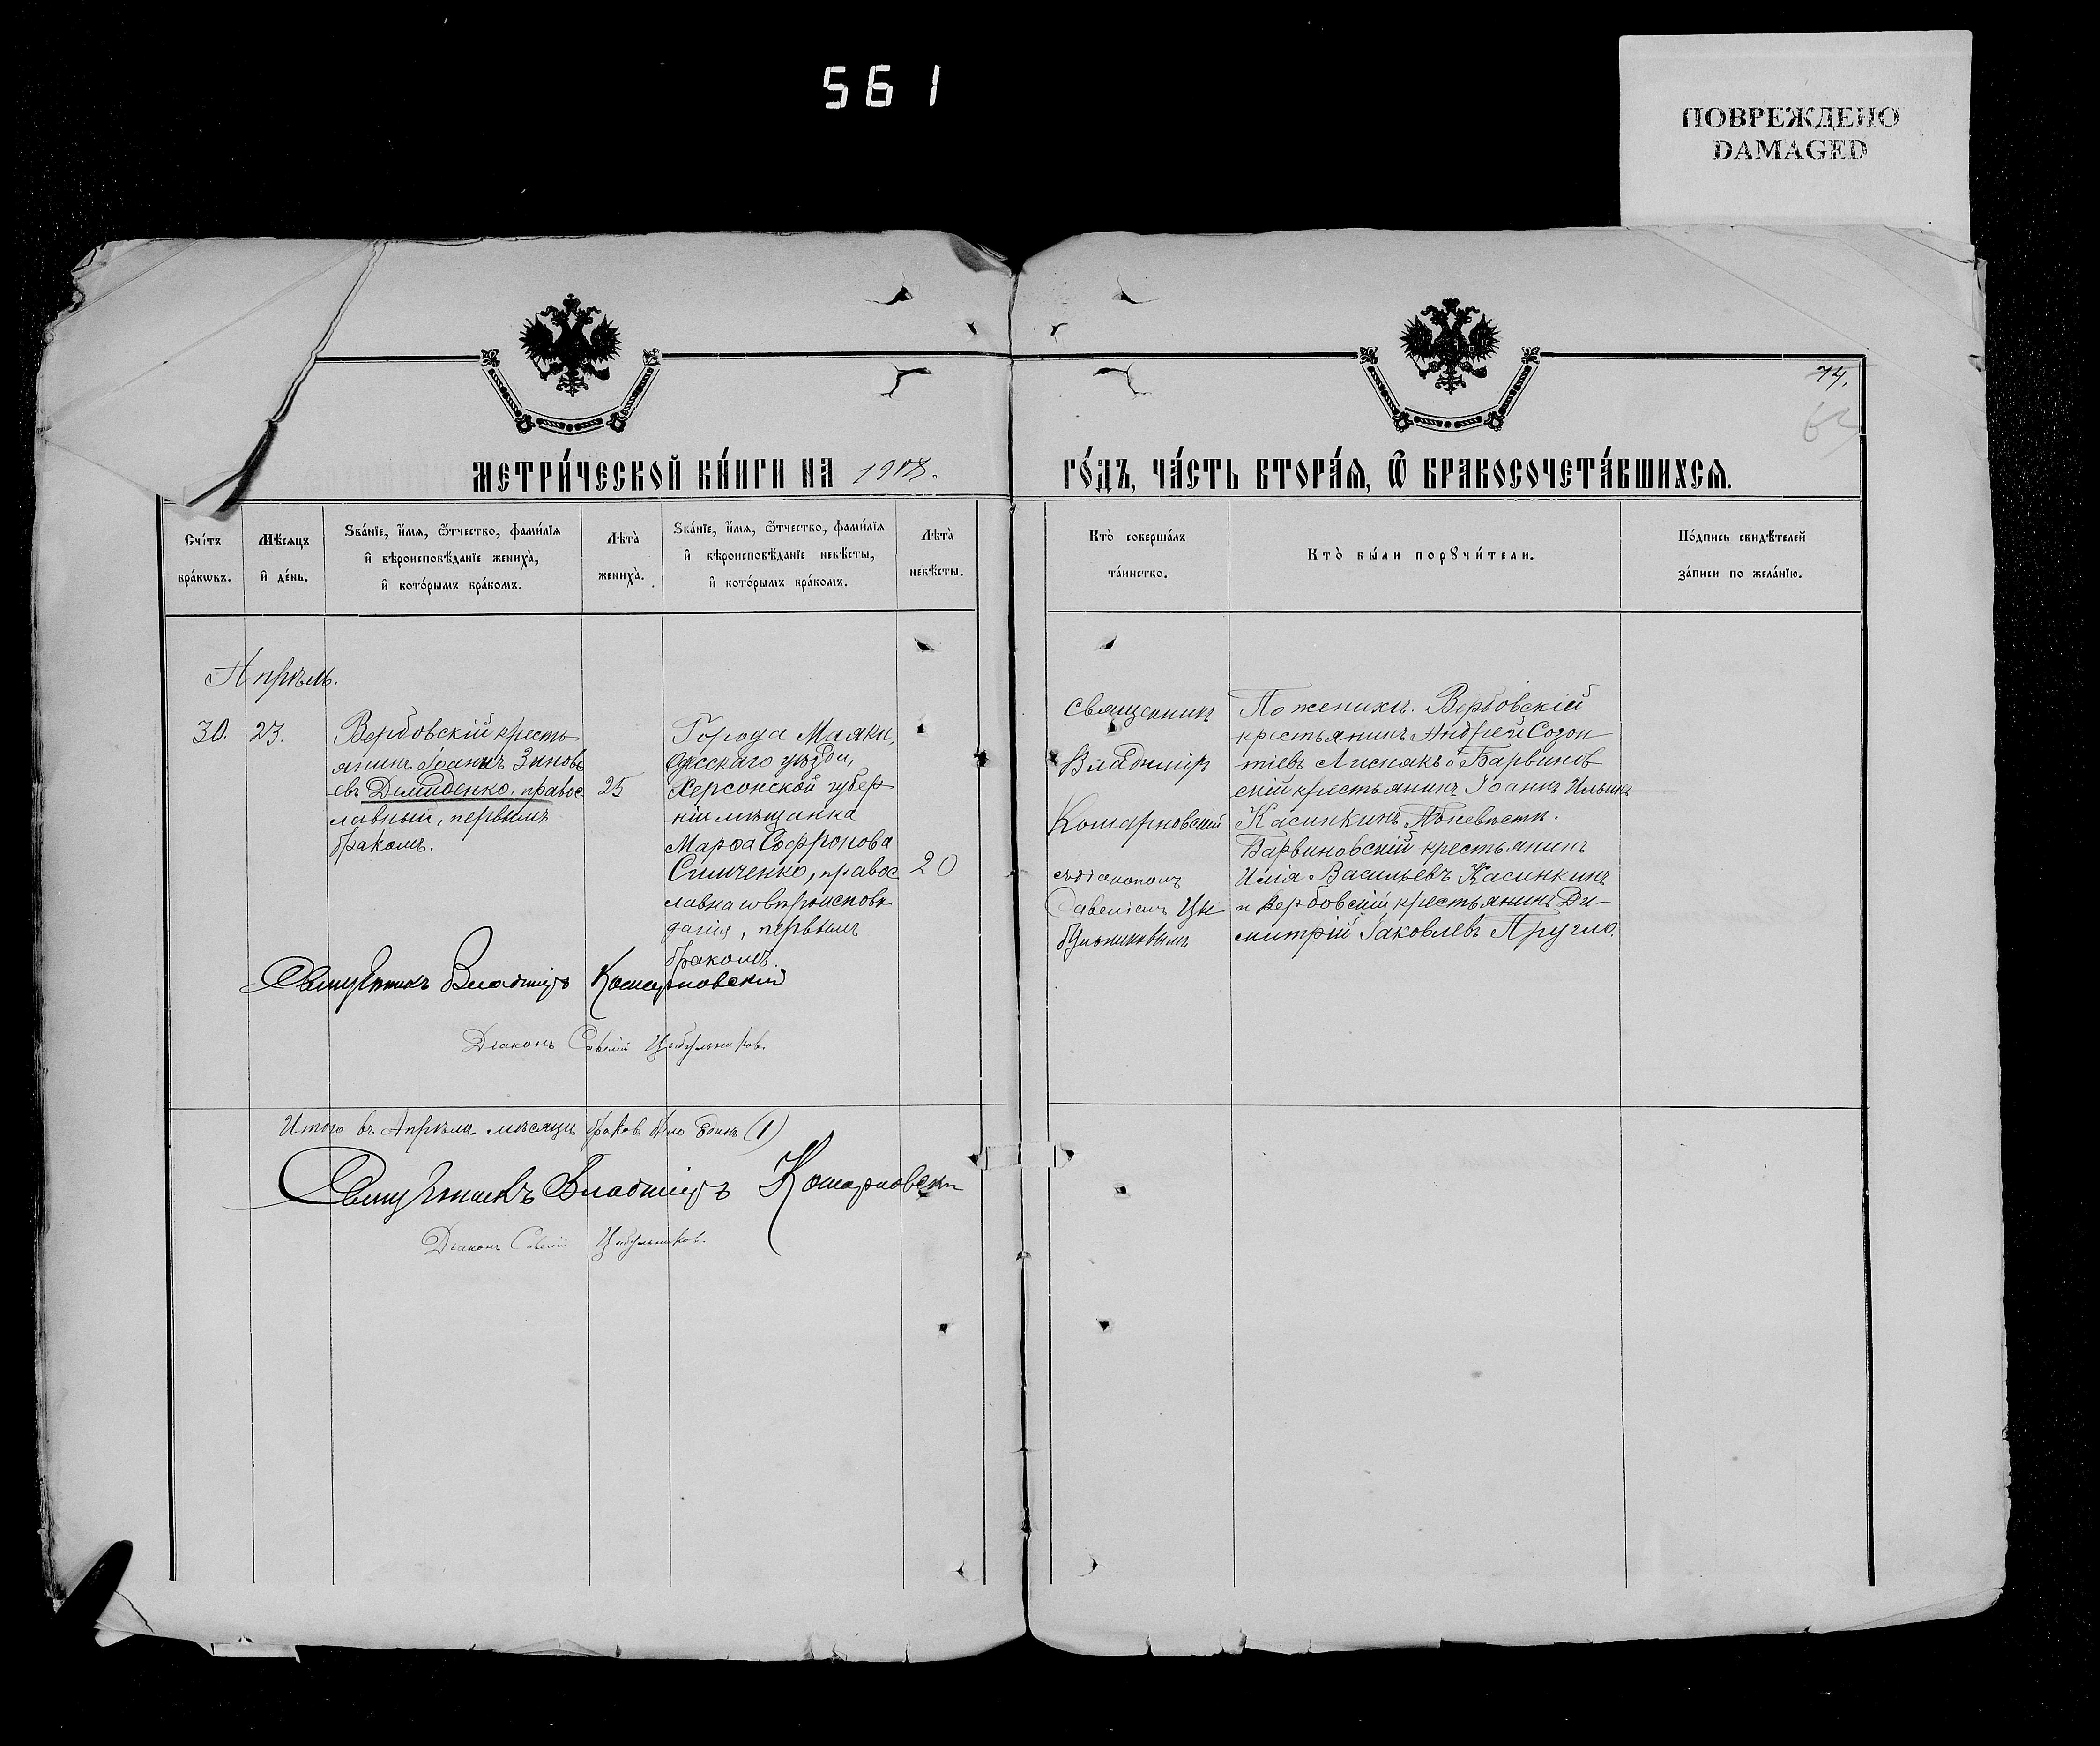 561
ПОВРЕЖДЕНО
DAMAGED
74.
62
МЕТРИ́ЧЕСКОЙ КНИ́ГИ НА 1908.
ГО́ДЪ, ЧА́СТЬ ВТОРА́Ѧ, Ѽ БРАКОСОЧЕТА́ВШИХСѦ.
Счі́тъ
бра́кѡвъ.
Мѣ́сѧцъ
и҆ де́нь.
Ѕва́нїе, и҆́мѧ, ѻ҆́тчество, фамѝлїѧ
и҆ вѣроисповѣ́данїе жениха̀,
и҆ кото́рымъ бра́комъ.
Лѣта̀
жениха̀.
Ѕва́нїе, и҆́мѧ, ѻ҆́тчество, фамѝлїѧ
и҆ вѣроисповѣ́данїе невѣ́сты,
и҆ кото́рымъ бра́комъ.
Лѣта̀
невѣ́сты.
Кто̀ соверша́лъ
та́инство.
Кто̀ бы́ли порꙋчи́тели.
По́дпись свидѣ́телей
за́писи по жела́нїю.
Апрѣль.
30.
23.
Вербовскій кресть
янинъ Іоаннъ Зиновь
евъ Демиденко, правос
лавный, первымъ
бракомъ.
25
Города Маяки,
Одесскаго уѣзда,
Херсонской губер
ніи мѣщанка
Марѳа Софронова
Симченко, правос
лавнаго вѣроисповѣ
данія, первымъ
бракомъ.
20
Священникъ
Владиміръ
Комарновскій
съ діакономъ
Савеліемъ Цы
бульниковымъ
По женихѣ. Вербовскій
крестьянинъ Андрей Созон
тіевъ Лиснякъ и Барвинов
скій крестьянинъ Іоаннъ Ильинъ
Касинкинъ. По невѣстѣ.
Барвиновскій крестьянинъ
Илія Васильевъ Касинкинъ
и Вербовскій крестьянинъ Ди-
митрій Іаковлевъ Пругло.
Священникъ Владиміръ Комарновскій
Діаконъ Савелій Цыбульников.
Итого въ Апрѣлѣ мѣсяцѣ браков было один (1)
Священникъ Владиміръ Комарновскій
Діаконъ Савелій Цыбульников.